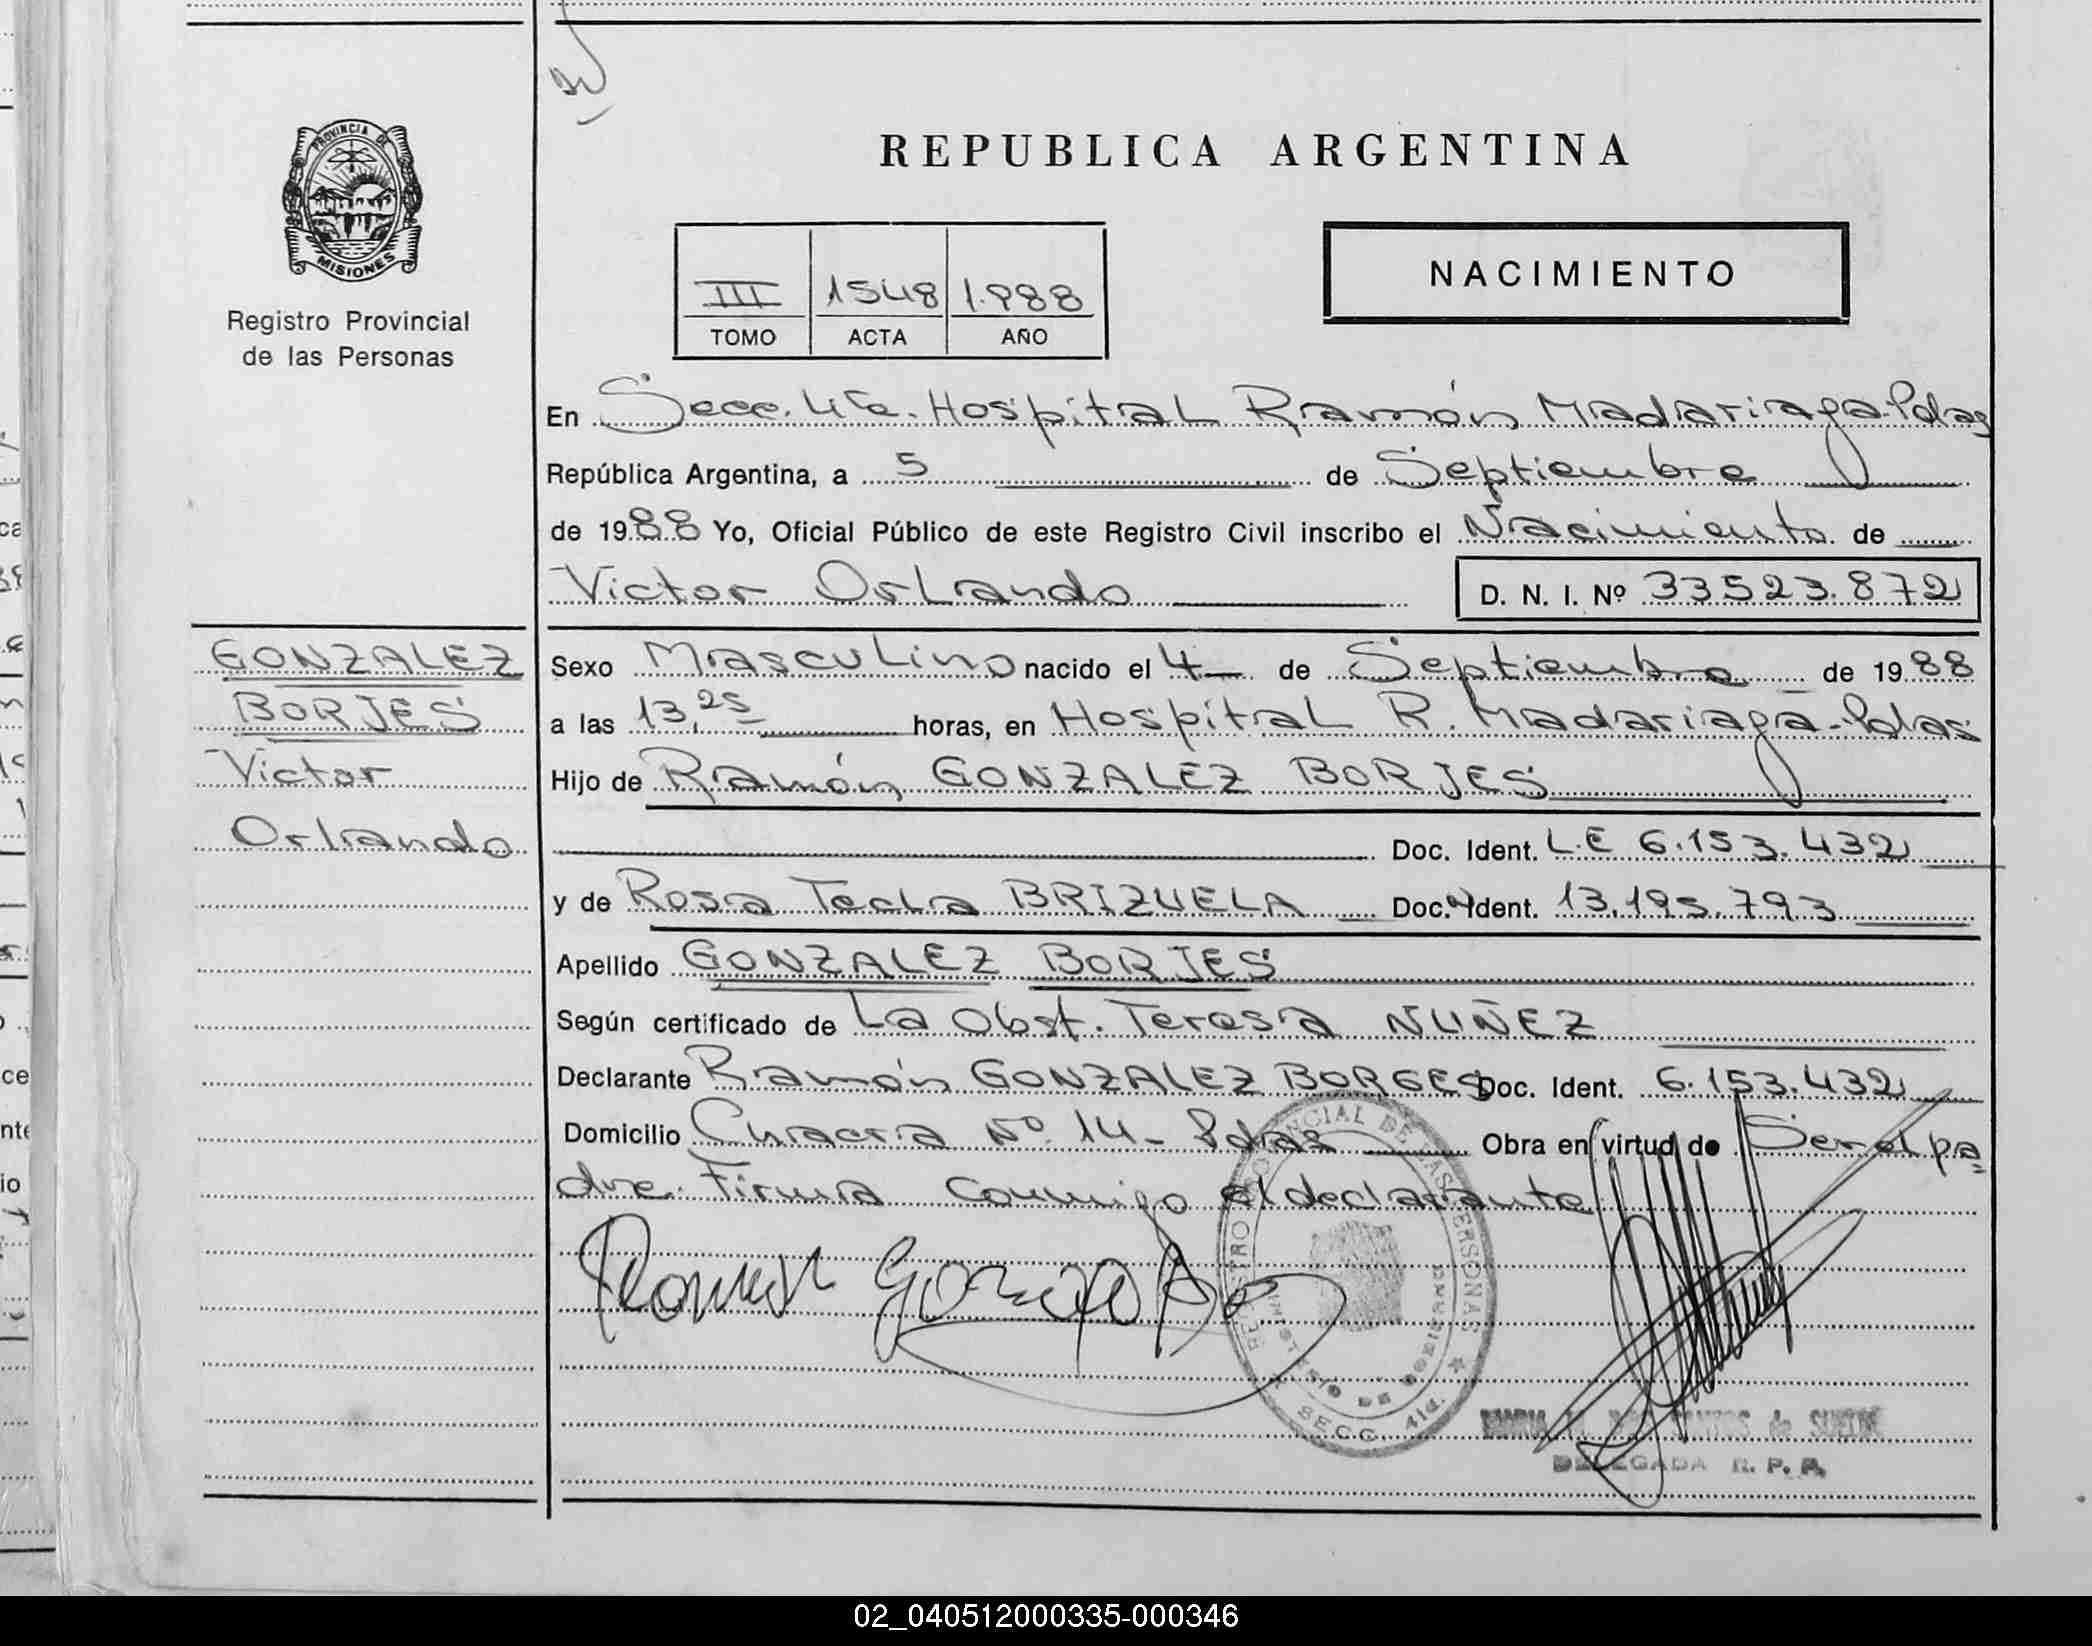 PROVINCIA DE
MISIONES
Registro Provincial
de las Personas
REPUBLICA ARGENTINA
NACIMIENTO
III 1548 1.988
TOMO ACTA AÑO
En Secc. 4ta. Hospital Ramón Madariaga-Pdas
República Argentina, a 5 de Septiembre
de 1988 Yo, Oficial Público de este Registro Civil inscribo el Nacimiento de
Victor Orlando D. N. I. Nº 33523.872
GONZALEZ
BORJES
Victor
Orlando
Sexo Masculino nacido el 4 de Septiembre de 1988
a las 13,25 horas, en Hospital R. Madariaga-Pdas
Hijo de Ramón GONZALEZ BORJES
Doc. Ident. L.E 6.153.432
y de Rosa Tecla BRIZUELA Doc. Ident. 13.195.793
Apellido GONZALEZ BORJES
Según certificado de La Obst. Teresa NUÑEZ
Declarante Ramón GONZALEZ BORGES Doc. Ident. 6.153.432
Domicilio Chacra Nº 14- Pdas Obra en virtud de Ser el pa=
dre. Firma conmigo el declarante
Ramon Gonzalez Bo
REGISTRO PROVINCIAL DE LAS PERSONAS
MINISTERIO DE GOBIERNO
SECC. 4ta.
MARIA DOS SANTOS de
DELEGADA R. P. P.
02_040512000335-000346